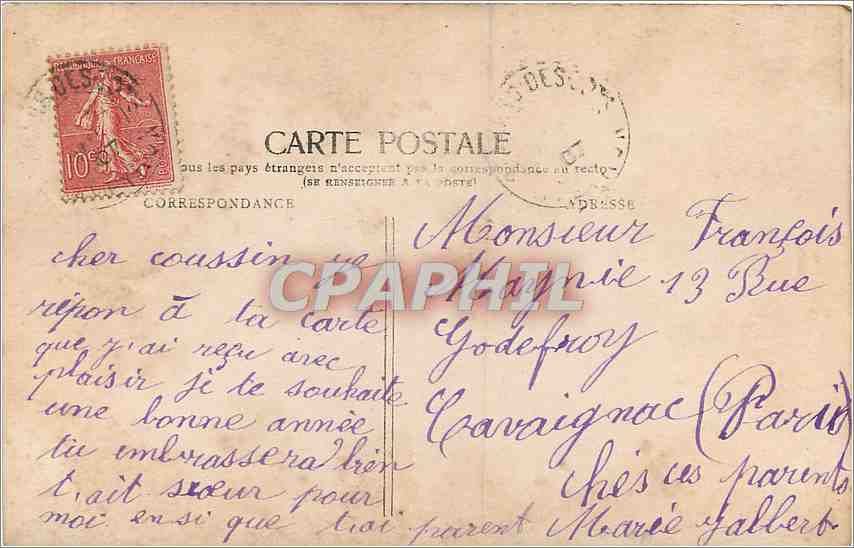 FRANÇAISE
10c
CARTE POSTALE
ous les pays étrangers n'acceptent pas la correspondance au recto
(SE RENSEIGNER A LA POSTE)
CORRESPONDANCE
cher coussin je
répon à ta carte
que j'ai reçu avec
plaisir je te souhaite
une bonne année
tu embrassera bien
t,ait sœur pour
moi en si que t,ai parent Marie jalbert
ADRESSE
Monsieur François
Maynie 13 Rue
Godefroy
Cavaignac (Paris)
chés ces parents
CPAPHIL